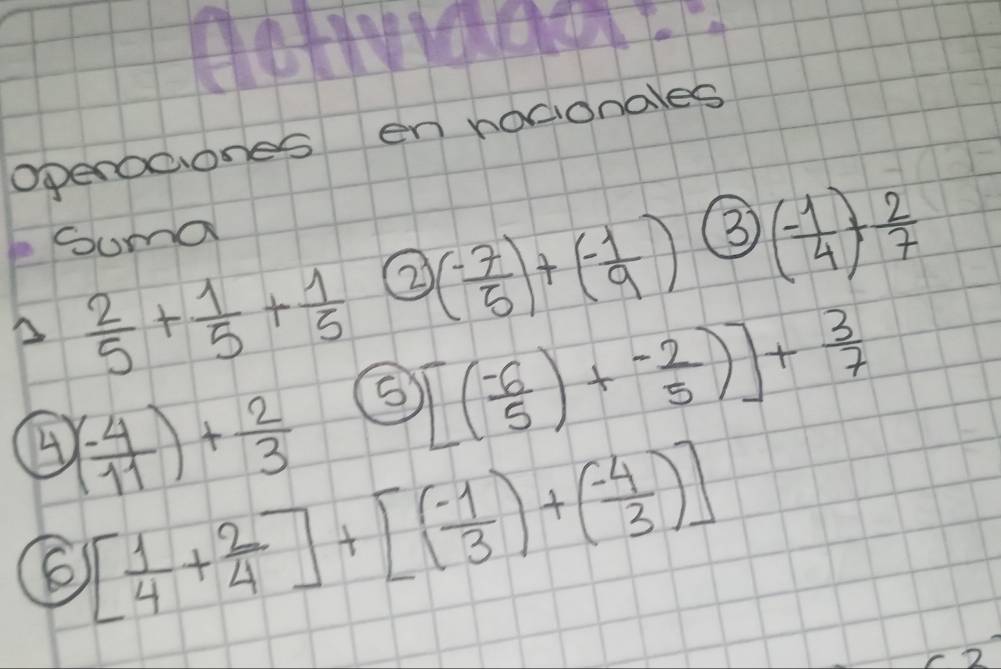 Actividad!!
operaciones en racionales
- Suma
1 2/5 + 1/5 + 1/5 ② (-7/5) + (-1/9) ③ (-1/4) + 2/7
④ (-4/11) + 2/3 ⑤ [(-6/5) + -2/5)] + 3/7
⑥ [1/4 + 2/4] + [(-1/3) + (-4/3)]